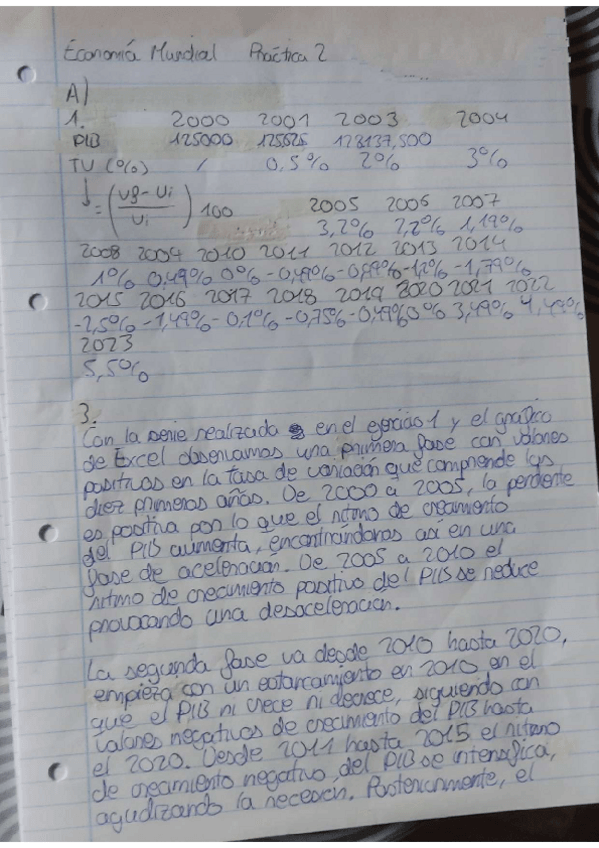 Economía Mundial Práctica 2
A)
1. 2000 2001 2003 2004
PIB 125000 125625 128137,500
TV (%) / 0,5% 2% 3%
↓ = (Vf - Vi / Vi) 100 2005 2006 2007
3,2% 2,2% 1,19%
2008 2004 2010 2011 2012 2013 2014
1% 0,49% 0% -0,49% -0,89% -1,2% -1,79%
2015 2016 2017 2018 2019 2020 2021 2022
-2,5% -1,49% -0,1% -0,75% -0,49% 0% 3,49% 4,49%
2023
5,5%
3.
Con la serie realizada en el ejercicio 1 y el gráfico
de Excel observamos una primera fase con valores
positivos en la tasa de variación que comprende los
diez primeros años. De 2000 a 2005, la pendiente
es positiva por lo que el ritmo de crecimiento
del PIB aumenta, encontrandonos así en una
fase de aceleración. De 2005 a 2010 el
ritmo de crecimiento positivo del PIB se reduce
provocando una desaceleración.
La segunda fase va desde 2010 hasta 2020,
empieza con un estancamiento en 2010 en el
que el PIB ni crece ni decrece, siguiendo con
valores negativos de crecimiento del PIB hasta
el 2020. Desde 2011 hasta 2015 el ritmo
de crecimiento negativo del PIB se intensifica,
agudizando la recesión. Posteriormente, el